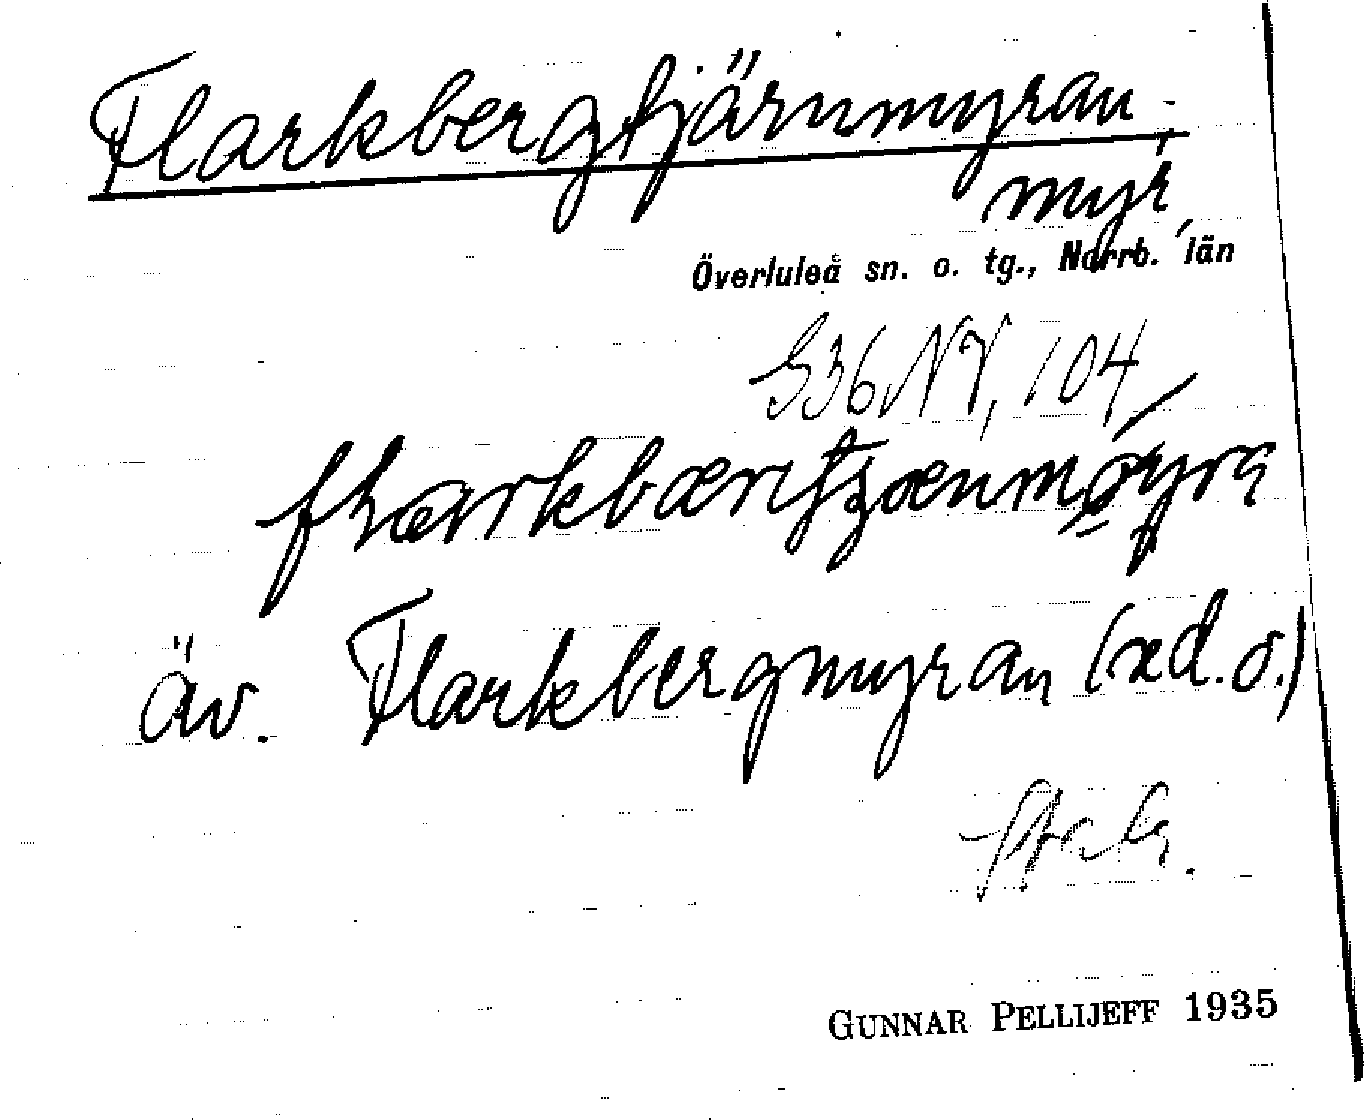 Flarkbergtjärnmyran,
myr,
Överluleå sn. o. tg., Norrb. län
S36NV, 104
äv. Flarkbergmyran (xd.o.)
GUNNAR PELLIJEFF 1935